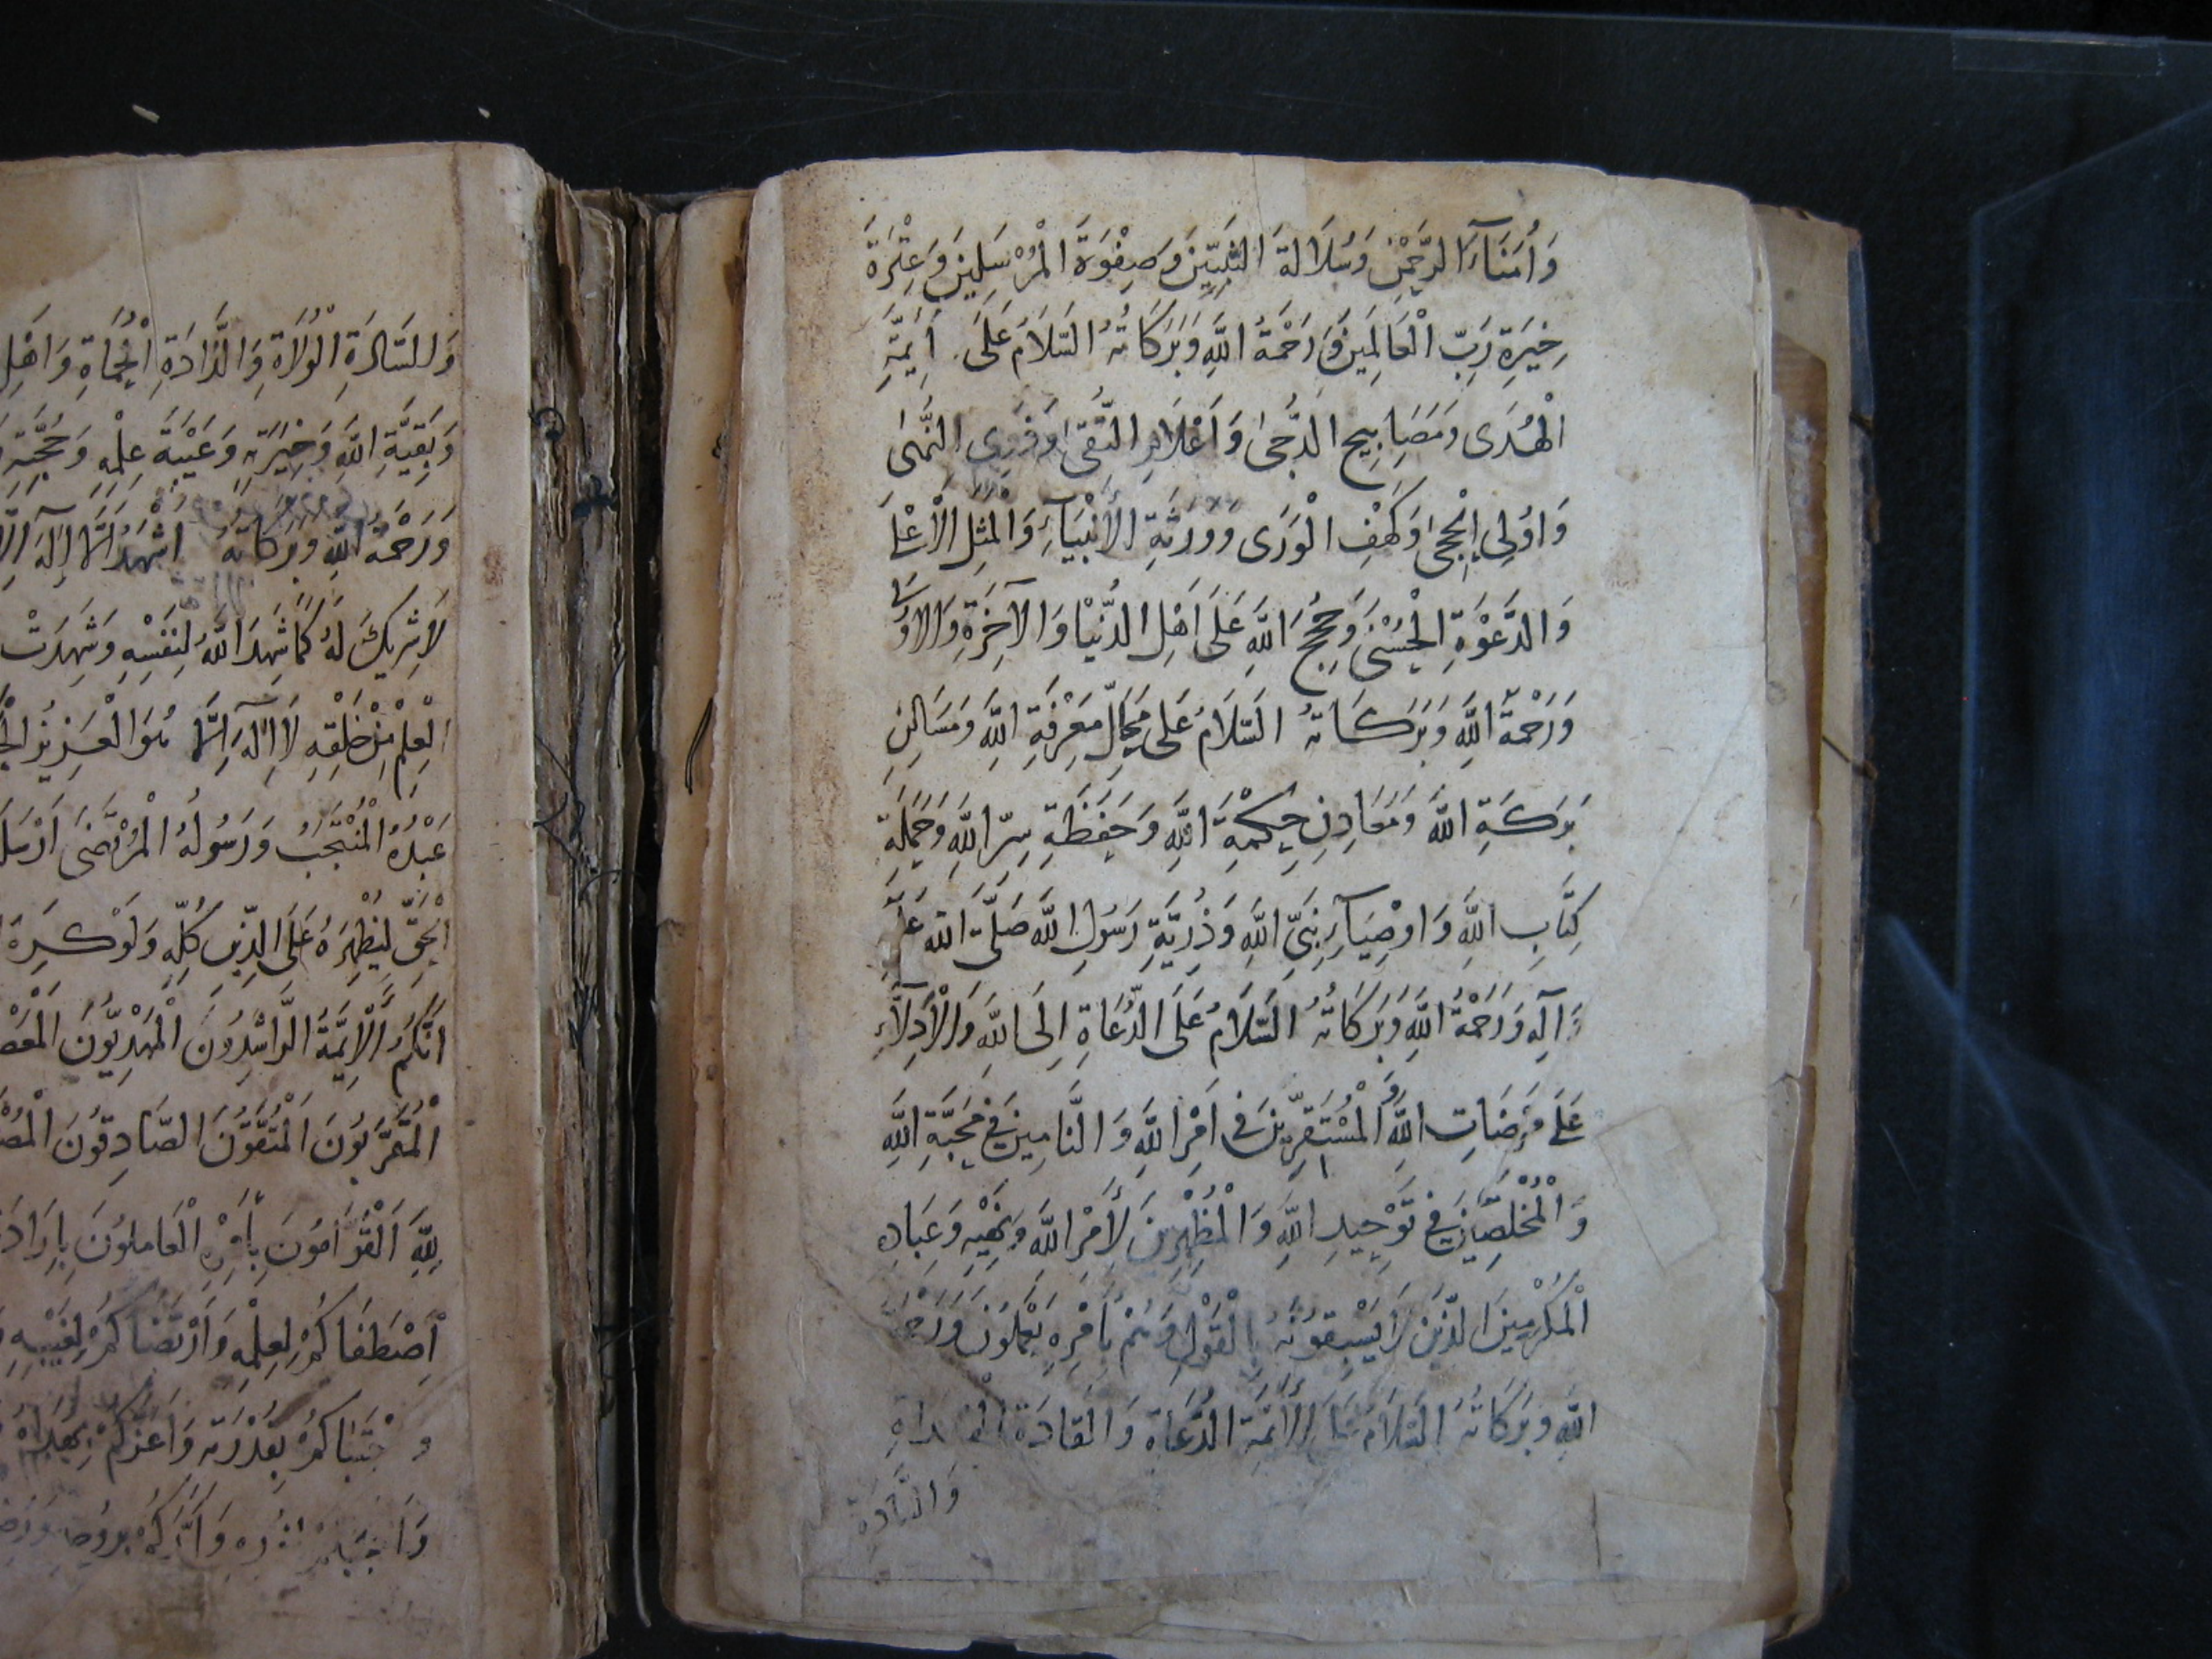 وَأُمَنَآءَ الرَّحْمٰنِ وَسُلَالَةَ النَّبِيِّينَ وَصِفْوَةَ الْمُرْسَلِينَ وَعِتْرَةَ
خِيَرَةِ رَبِّ الْعَالَمِينَ وَرَحْمَةُ اللّٰهِ وَبَرَكَاتُهُ السَّلَامُ عَلَى أَئِمَّةِ
الْهُدَى وَمَصَابِيحِ الدُّجَىٰ وَأَعْلَامِ التُّقَىٰ وَذَوِى النُّهَىٰ
وَاُولِي الْحِجَىٰ وَكَهْفِ الْوَرَى وَوَرَثَةِ الْأَنْبِيَآءِ وَالْمَثَلِ الْأَعْلَى
وَالدَّعْوَةِ الْحُسْنَىٰ وَحُجَجِ اللّٰهِ عَلَى اَهْلِ الدُّنْيَا وَالْآخِرَةِ وَالْاُولَى
وَرَحْمَةُ اللّٰهِ وَبَرَكَاتُهُ السَّلَامُ عَلَى مَحَالِّ مَعْرِفَةِ اللّٰهِ وَمَسَاكِنِ
بَرَكَةِ اللّٰهِ وَمَعَادِنِ حِكْمَةِ اللّٰهِ وَحَفَظَةِ سِرِّ اللّٰهِ وَحَمَلَةِ
كِتَابِ اللّٰهِ وَاَوْصِيَآءِ نَبِيِّ اللّٰهِ وَذُرِّيَّةِ رَسُولِ اللّٰهِ صَلَّى اللّٰه عَلَيْهِ
وَآلِهِ وَرَحْمَةُ اللّٰهِ وَبَرَكَاتُهُ السَّلَامُ عَلَى الدُّعَاةِ اِلَى اللّٰهِ وَالْاَدِلَّاءِ
عَلَى مَرْضَاتِ اللّٰهِ وَالْمُسْتَقِرِّينَ فِى اَمْرِ اللّٰهِ وَالتَّامِّينَ فِي مَحَبَّةِ اللّٰهِ
وَالْمُخْلِصِينَ فِي تَوْحِيدِ اللّٰهِ وَالْمُظْهِرِينَ لِأَمْرِ اللّٰهِ وَنَهْيِهِ وَعِبَادِهِ
الْمُكْرَمِينَ الَّذِينَ لَا يَسْبِقُونَهُ بِالْقَوْلِ وَهُمْ بِاَمْرِهِ يَعْمَلُونَ وَرَحْمَةُ
اللّٰهِ وَبَرَكَاتُهُ السَّلَامُ عَلَى الْأَئِمَّةِ الدُّعَاةِ وَالْقَادَةِ الْهُدَاةِ
وَالسَّادَةِ
وَالسَّادَةِ الْوُلَاةِ وَالذَّادَةِ الْحُمَاةِ وَاَهْلِ
وَبَقِيَّةِ اللّٰهِ وَخِيَرَتِهِ وَعَيْبَةِ عِلْمِهِ وَحُجَّتِهِ
وَرَحْمَةُ اللّٰهِ وَبَرَكَاتُهُ اَشْهَدُ اَنْ لَا اِلٰهَ اِلَّا
لَا شَرِيكَ لَهُ كَمَا شَهِدَ اللّٰهُ لِنَفْسِهِ وَشَهِدَتْ
الْعِلْمِ مِنْ خَلْقِهِ لَا اِلٰهَ اِلَّا هُوَ الْعَزِيزُ
عَبْدُهُ الْمُنْتَجَبُ وَرَسُولُهُ الْمُرْتَضَى اَرْسَلَهُ
الْحَقِّ لِيُظْهِرَهُ عَلَى الدِّينِ كُلِّهِ وَلَوْ كَرِهَ
اَنَّكُمُ الْاَئِمَّةُ الرَّاشِدُونَ الْمَهْدِيُّونَ
الْمُقَرَّبُونَ الْمُتَّقُونَ الصَّادِقُونَ
لِلّٰهِ الْقَوَّامُونَ بِأَمْرِهِ الْعَامِلُونَ بِاِرَادَتِهِ
اِصْطَفَاكُمْ لِعِلْمِهِ وَارْتَضَاكُمْ لِغَيْبِهِ
وَاجْتَبَاكُمْ بِقُدْرَتِهِ وَاَعَزَّكُمْ بِهُدَاهُ